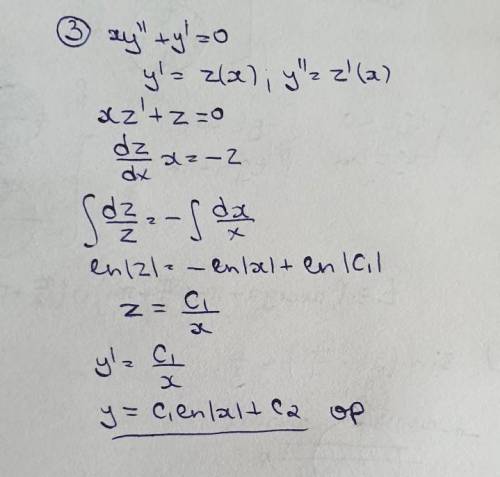 ③ xy" + y' = 0
y' = z(x) ; y" = z'(x)
xz' + z = 0
dz/dx x = -z
∫ dz/z = - ∫ dx/x
ln|z| = -ln|x| + ln|C₁|
z = C₁/x
y' = C₁/x
y = C₁ln|x| + C₂ op